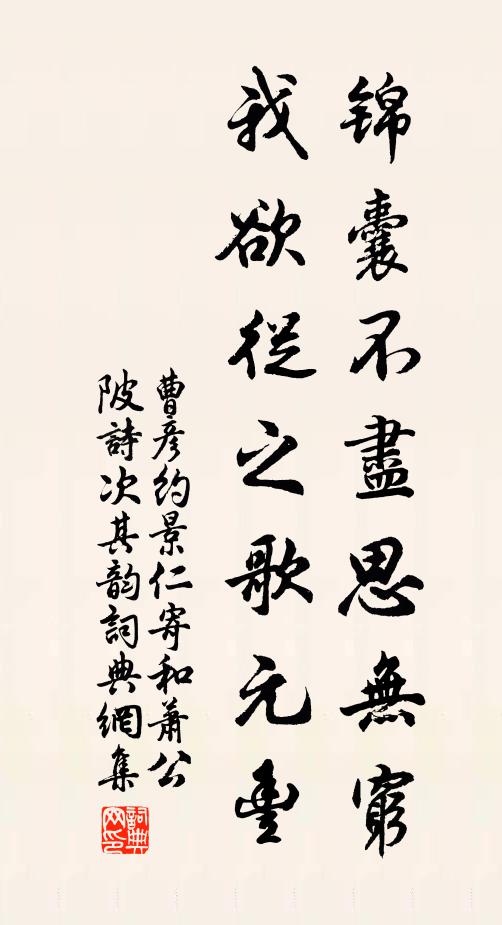 锦囊不盡思無窮
我欲從之歌元豊
曹彥約景仁寄和蕭公
陂詩次其韵詞典網集
詞典
網印